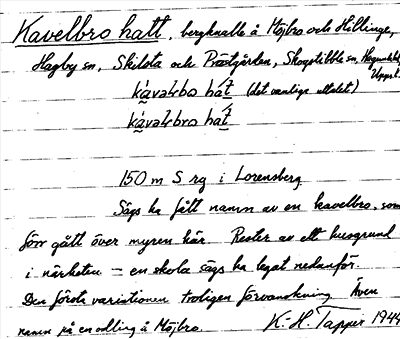 Kavelbro hatt, bergknalle å Möjbro och Hillinge,
Hagby sn, Skilsta och Prästgården, Skogstibble sn, Hagunda hd,
Uppsl.
kávaɫbo hát (det vanliga uttalet)
kávaɫbro hát
150 m S rg i Lorensberg.
Sägs ha fått namn av en kavelbro, som
förr gått över myren här. Rester av ett husgrund
i närheten – en skola sägs ha legat nedanför.
Den första variationen troligen förvanskning. Även
namn på en odling å Möjbro. K.-H. Tapper 1944